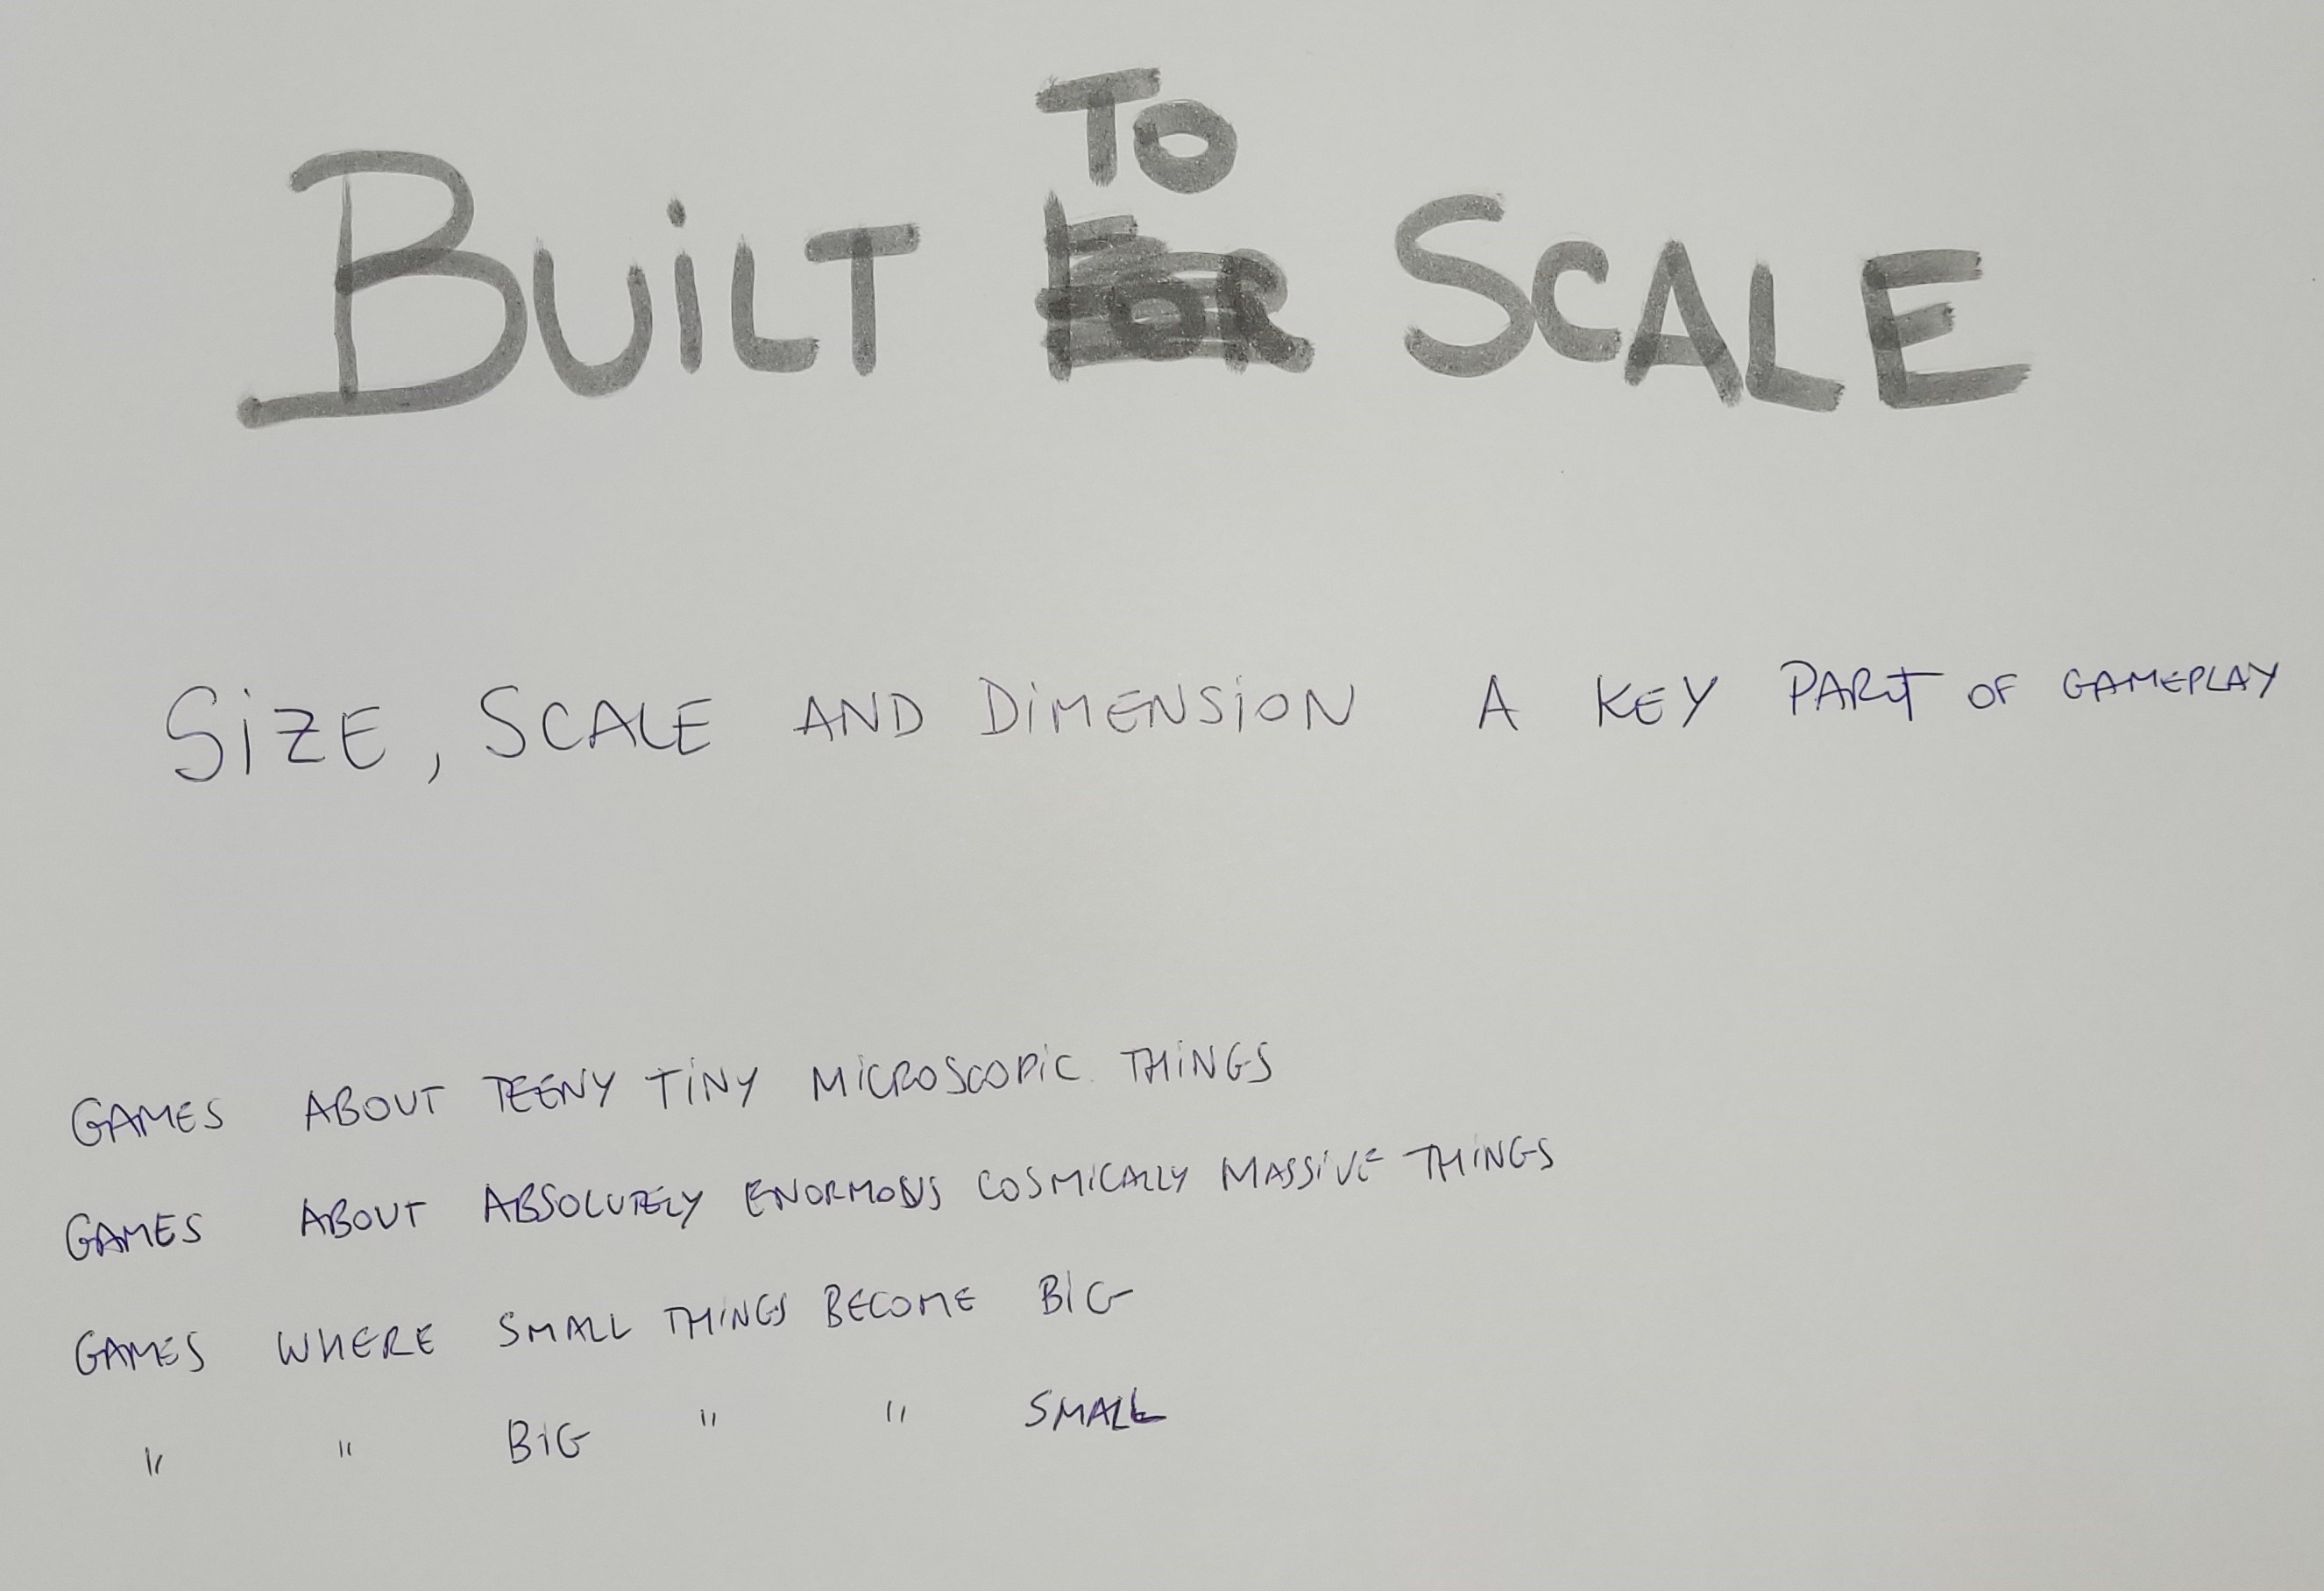 BUiLT TO SCALE
SiZE, SCALE AND DiMENSiON A KEY PART OF GAMEPLAY
GAMES ABOUT TEENY TiNY MiCROSCOPiC THiNGS
GAMES ABOUT ABSOLUTELY ENORMOUS COSMiCALLY MASSiVE THiNGS
GAMES WHERE SMALL THiNGS BECOME BiG
" " BiG " " SMALL